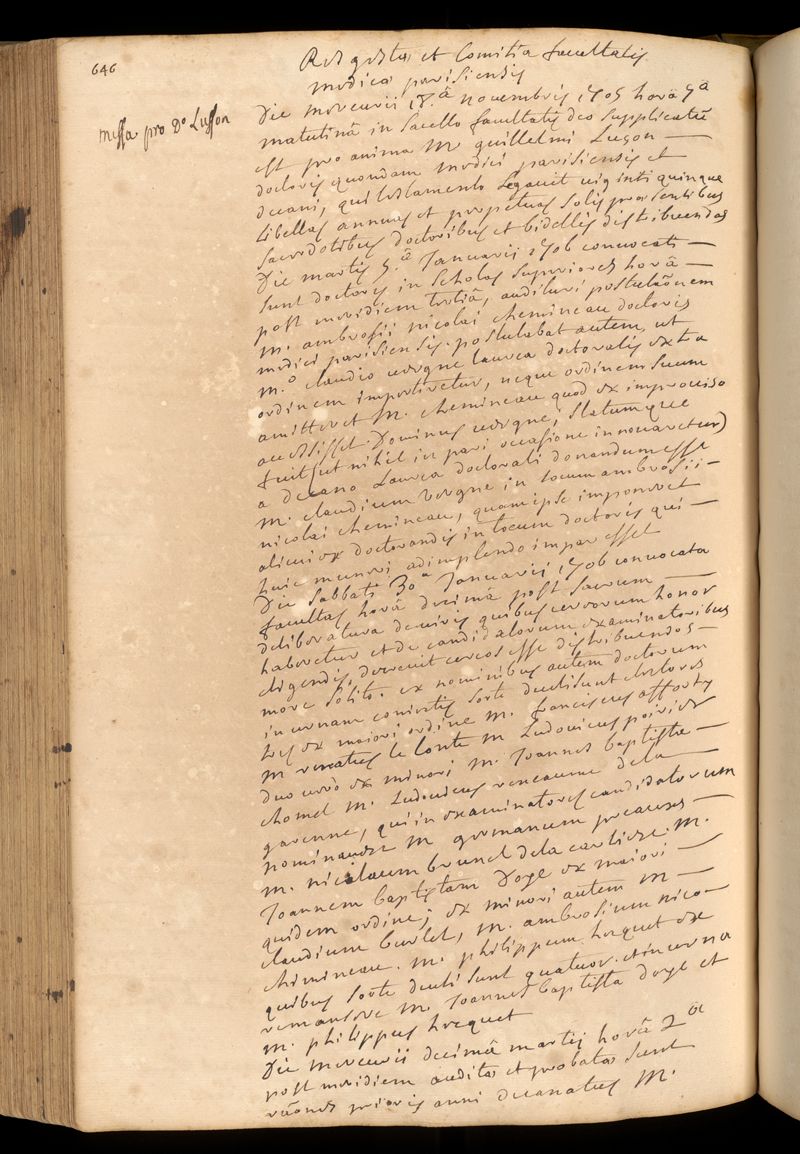 646
Res gestæ et Comitia facultatis
medicæ parisiensis
messa pro Do Lusson
Die mercurii 18.â novembris 1705 horâ 9â
matutinâ in sacello facultatis deo supplicatū
est pro anima M. guillelmi Luson
doctoris quondam medici parisiensis et
decani, qui testamento Legavit viginti quinque
Libellas annuas et perpetuas solis præsentibus
sacerdotibus doctoribus et bidellis distribuendas
Die martis 5.â Januarii 1706 convocati
sunt doctores in scholas superiores horâ
post meridiem tertiâ, audituri postulãonem
M. ambrosii nicolai chemineau doctoris
medici parisiensis. postulabat autem, ut
M.o claudio vergne laurea doctoralis extra
ordinem impertiretur, neque ordinem suum
amitteret M. chemineau quod ex improviso
accessisset Dominus vergne, statumque
fuit (ut nihil in pari occasione innovaretur)
a decano Laurea doctorali donandum esse
M. claudium vergne in locum ambrosii
nicolai chemineau, quam ipse imponeret
alicui ex doctorandis in locum doctoris qui
huic muneri adimplendo impar esset
Die sabbati 30a Januarii 1706 convocata
facultas horâ decimâ post sacrum
deliberatura de viris quibus cereorum honor
haberetur et de candidatorum examinatoribus
eligendis, decrevit cereos esse distribuendos
more solito. ex nominibus autem doctorum
in urnam coniectis sorte ducti sunt electores
tres ex maiori ordine M. franciscus afforty
M renatus le Conte M Ludovicus poirier
duo vero ex minori M. Joannes baptista
chomel M. Ludovicus reneaume dela
garenne, qui in examinatores candidatorum
nominavere M germanum preaux
M. nicolaum brunel dela carliere. M.
Joannem baptistam Doye ex maiori
quidem ordine; ex minori autem M
claudium burlet, M. ambrosium nico-
chimineau. M. philippum hecquet ex
quibus sorte ducti sunt quatuor. et in urna
remansere M. Joannes baptista doye et
M. philippus hecquet
Die mercurii decimâ martij horâ 2â
post meridiem auditæ et probatæ sunt
rãones prioris anni decanatus M.